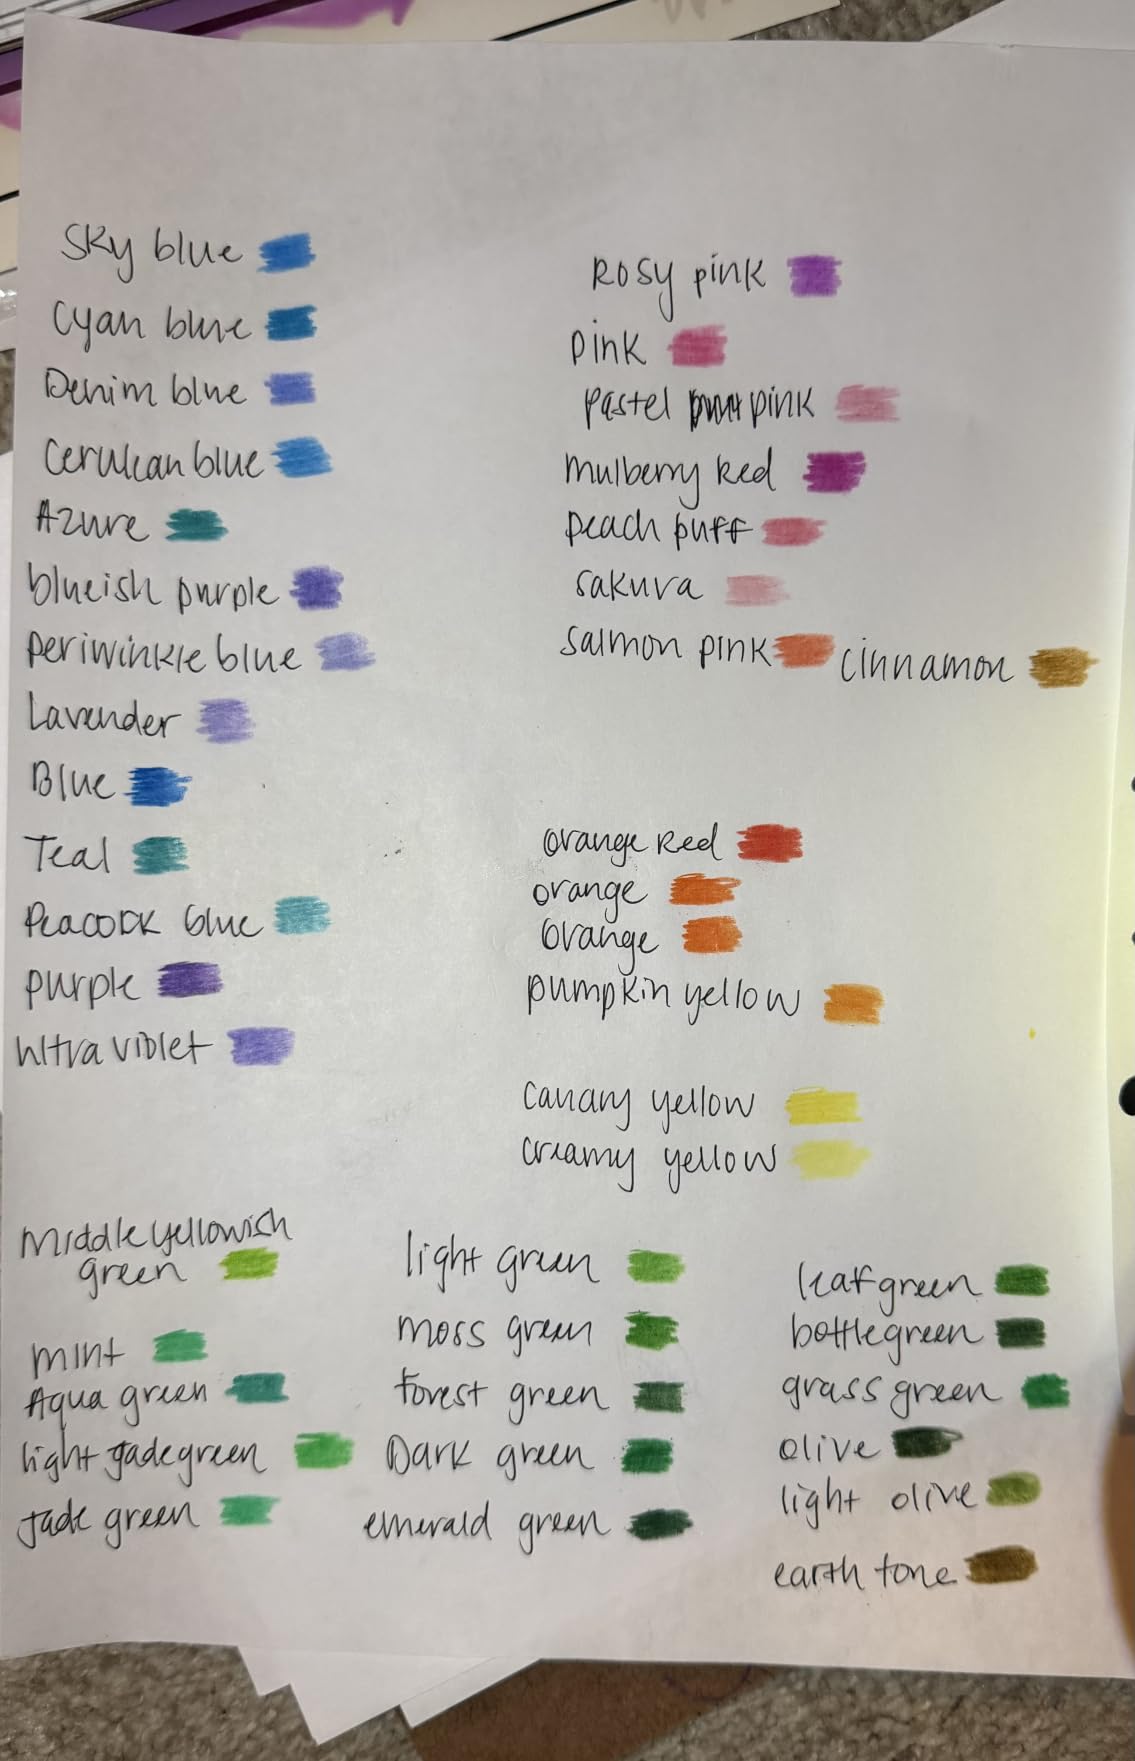 Sky blue
Cyan blue
Denim blue
Cerulean blue
Azure
blueish purple
periwinkle blue
Lavender
Blue
Teal
Peacock blue
purple
ultra violet
Rosy pink
pink
pastel pink
mulberry Red
peach puff
sakura
salmon pink
cinnamon
orange Red
orange
orange
pumpkin yellow
canary yellow
creamy yellow
Middle yellowish
green
mint
Aqua green
light jade green
Jade green
light green
moss green
forest green
Dark green
emerald green
leaf green
bottle green
grass green
olive
light olive
earth tone